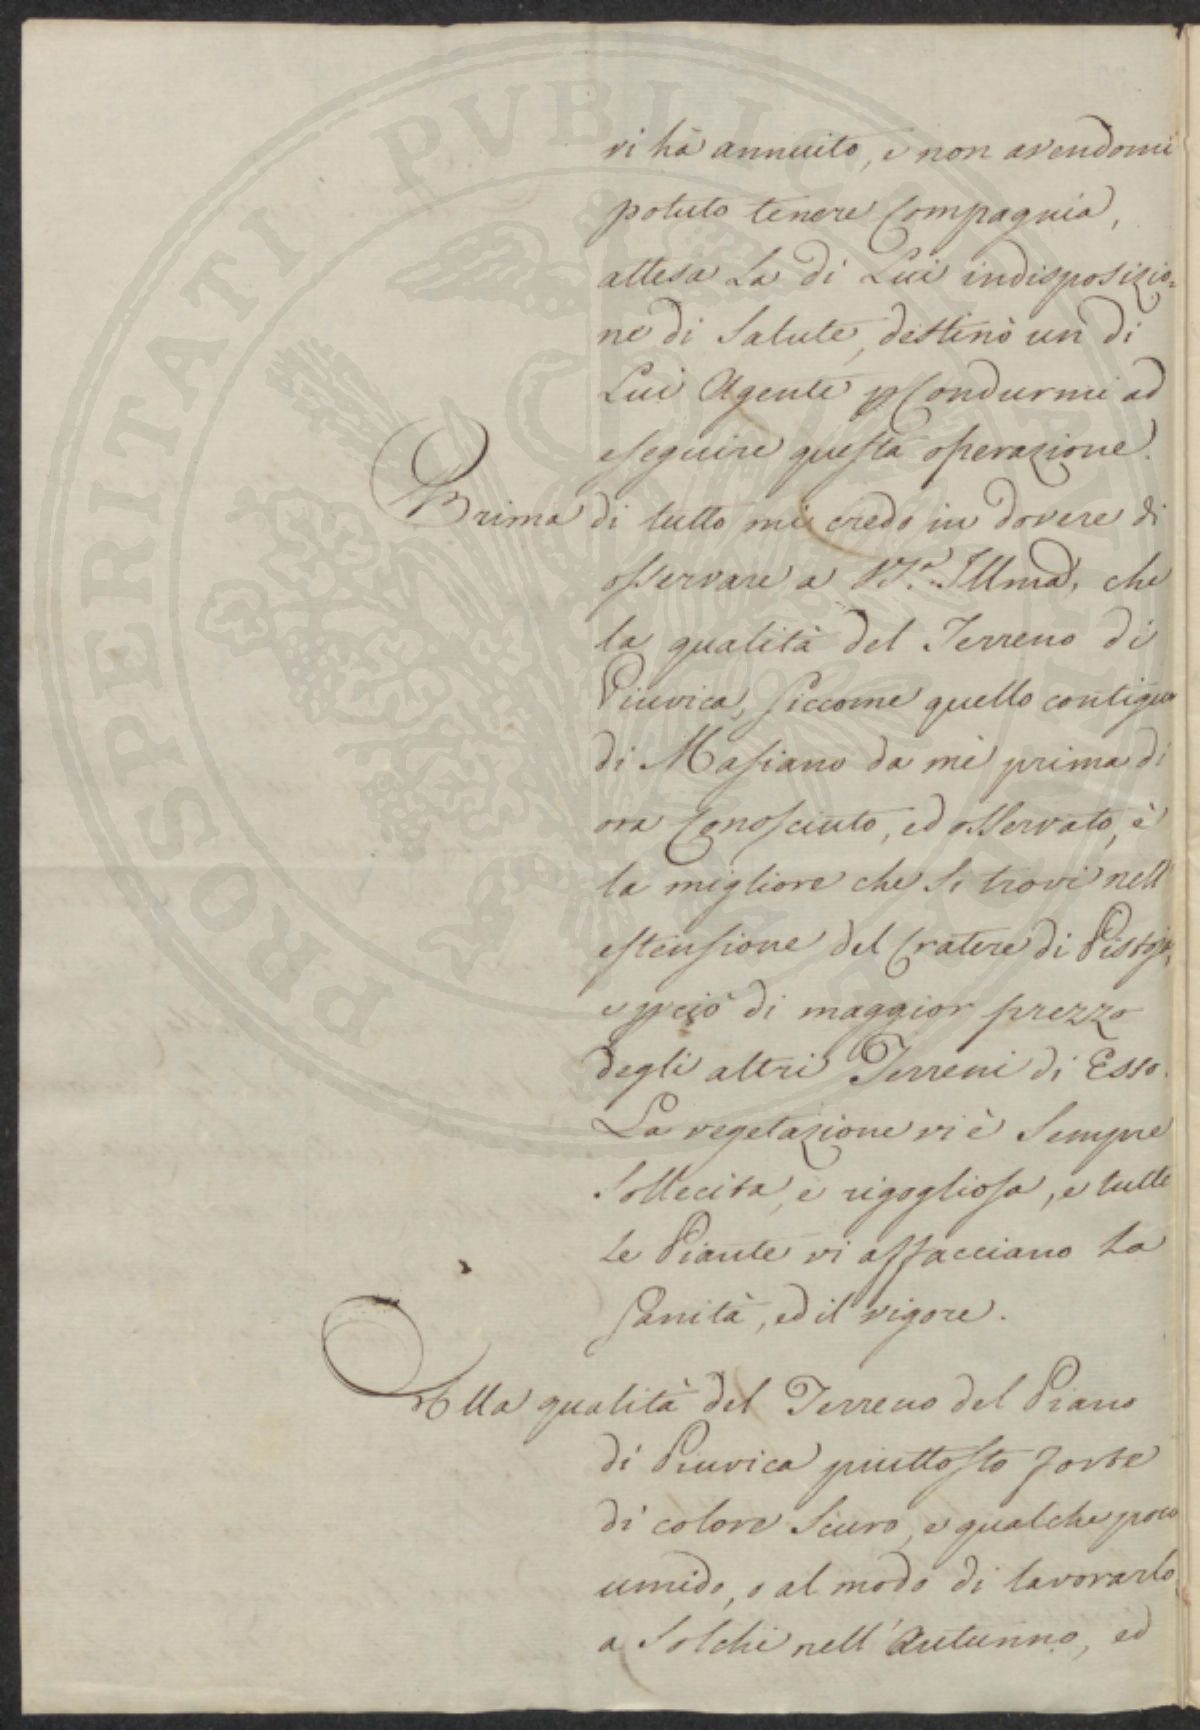 vi hà annuito, e non avendomi
potuto tenere Compagnia,
attesa La di Lui indisposizio=
ne di Salute, destinò un di
Lui Agente p Condurmi ad
eseguire questa operazione.
Prima di tutto mi credo in dovere di
osservare a V.S.a Illma, che
la qualità del Terreno di
Piuvica, siccome quello contiguo
di Masiano da mè prima di
ora Conosciuto, ed osservato, è
la migliore che Si trovi nell
estensione del Cratere di Pistoja,
e pciò di maggior prezzo
degli altri Terreni di Esso.
La vegetazione vi è Sempre
Sollecita, e rigogliosa, e tutte
Le Piante vi affacciano La
Sanità, ed il vigore.
Alla qualità del Terreno del Piano
di Piuvica piuttosto forte
di colore Scuro, e qualche poco
umido, o al modo di lavorarlo
a Solchi nell'Autunno, ed
PROSPERITATI PVBLICAE